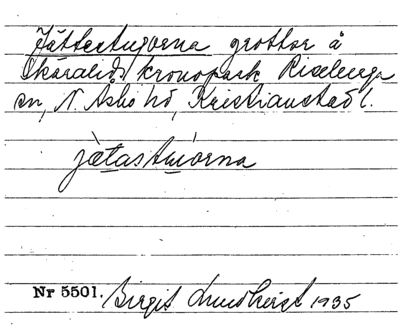 Jättestugorna grottor å
Skäralids kronopark Riseberga
sn, N. Åsbo hd, Kristianstads l.
jætastuorna
Nr 5501. Birgit Lundkvist 1935